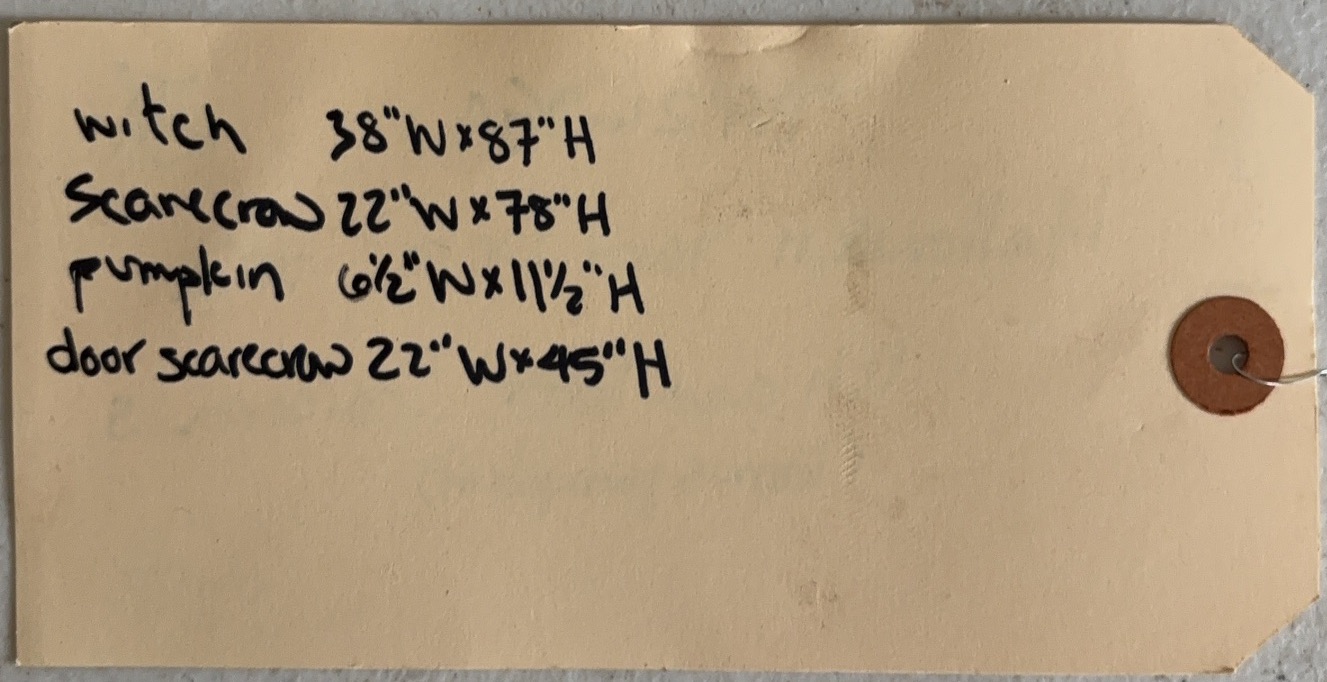 witch 38"W x 87"H
Scarecrow 22"W x 78"H
pumpkin 6½"W x 11½"H
door scarecrow 22"W x 45"H